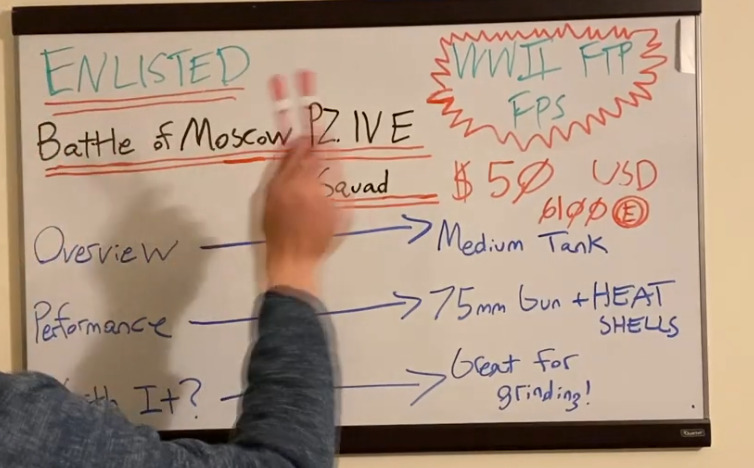 ENLISTED
WWII FTP
FPS
Battle of Moscow PZ. IV E
Squad
$50 USD
6100 E
Overview → Medium Tank
Performance → 75mm Gun + HEAT
SHELLS
It? → Great for
grinding!